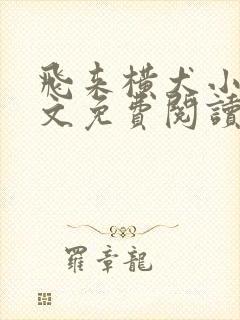 飛来橫犬小
文免費閱讀
羅章龍